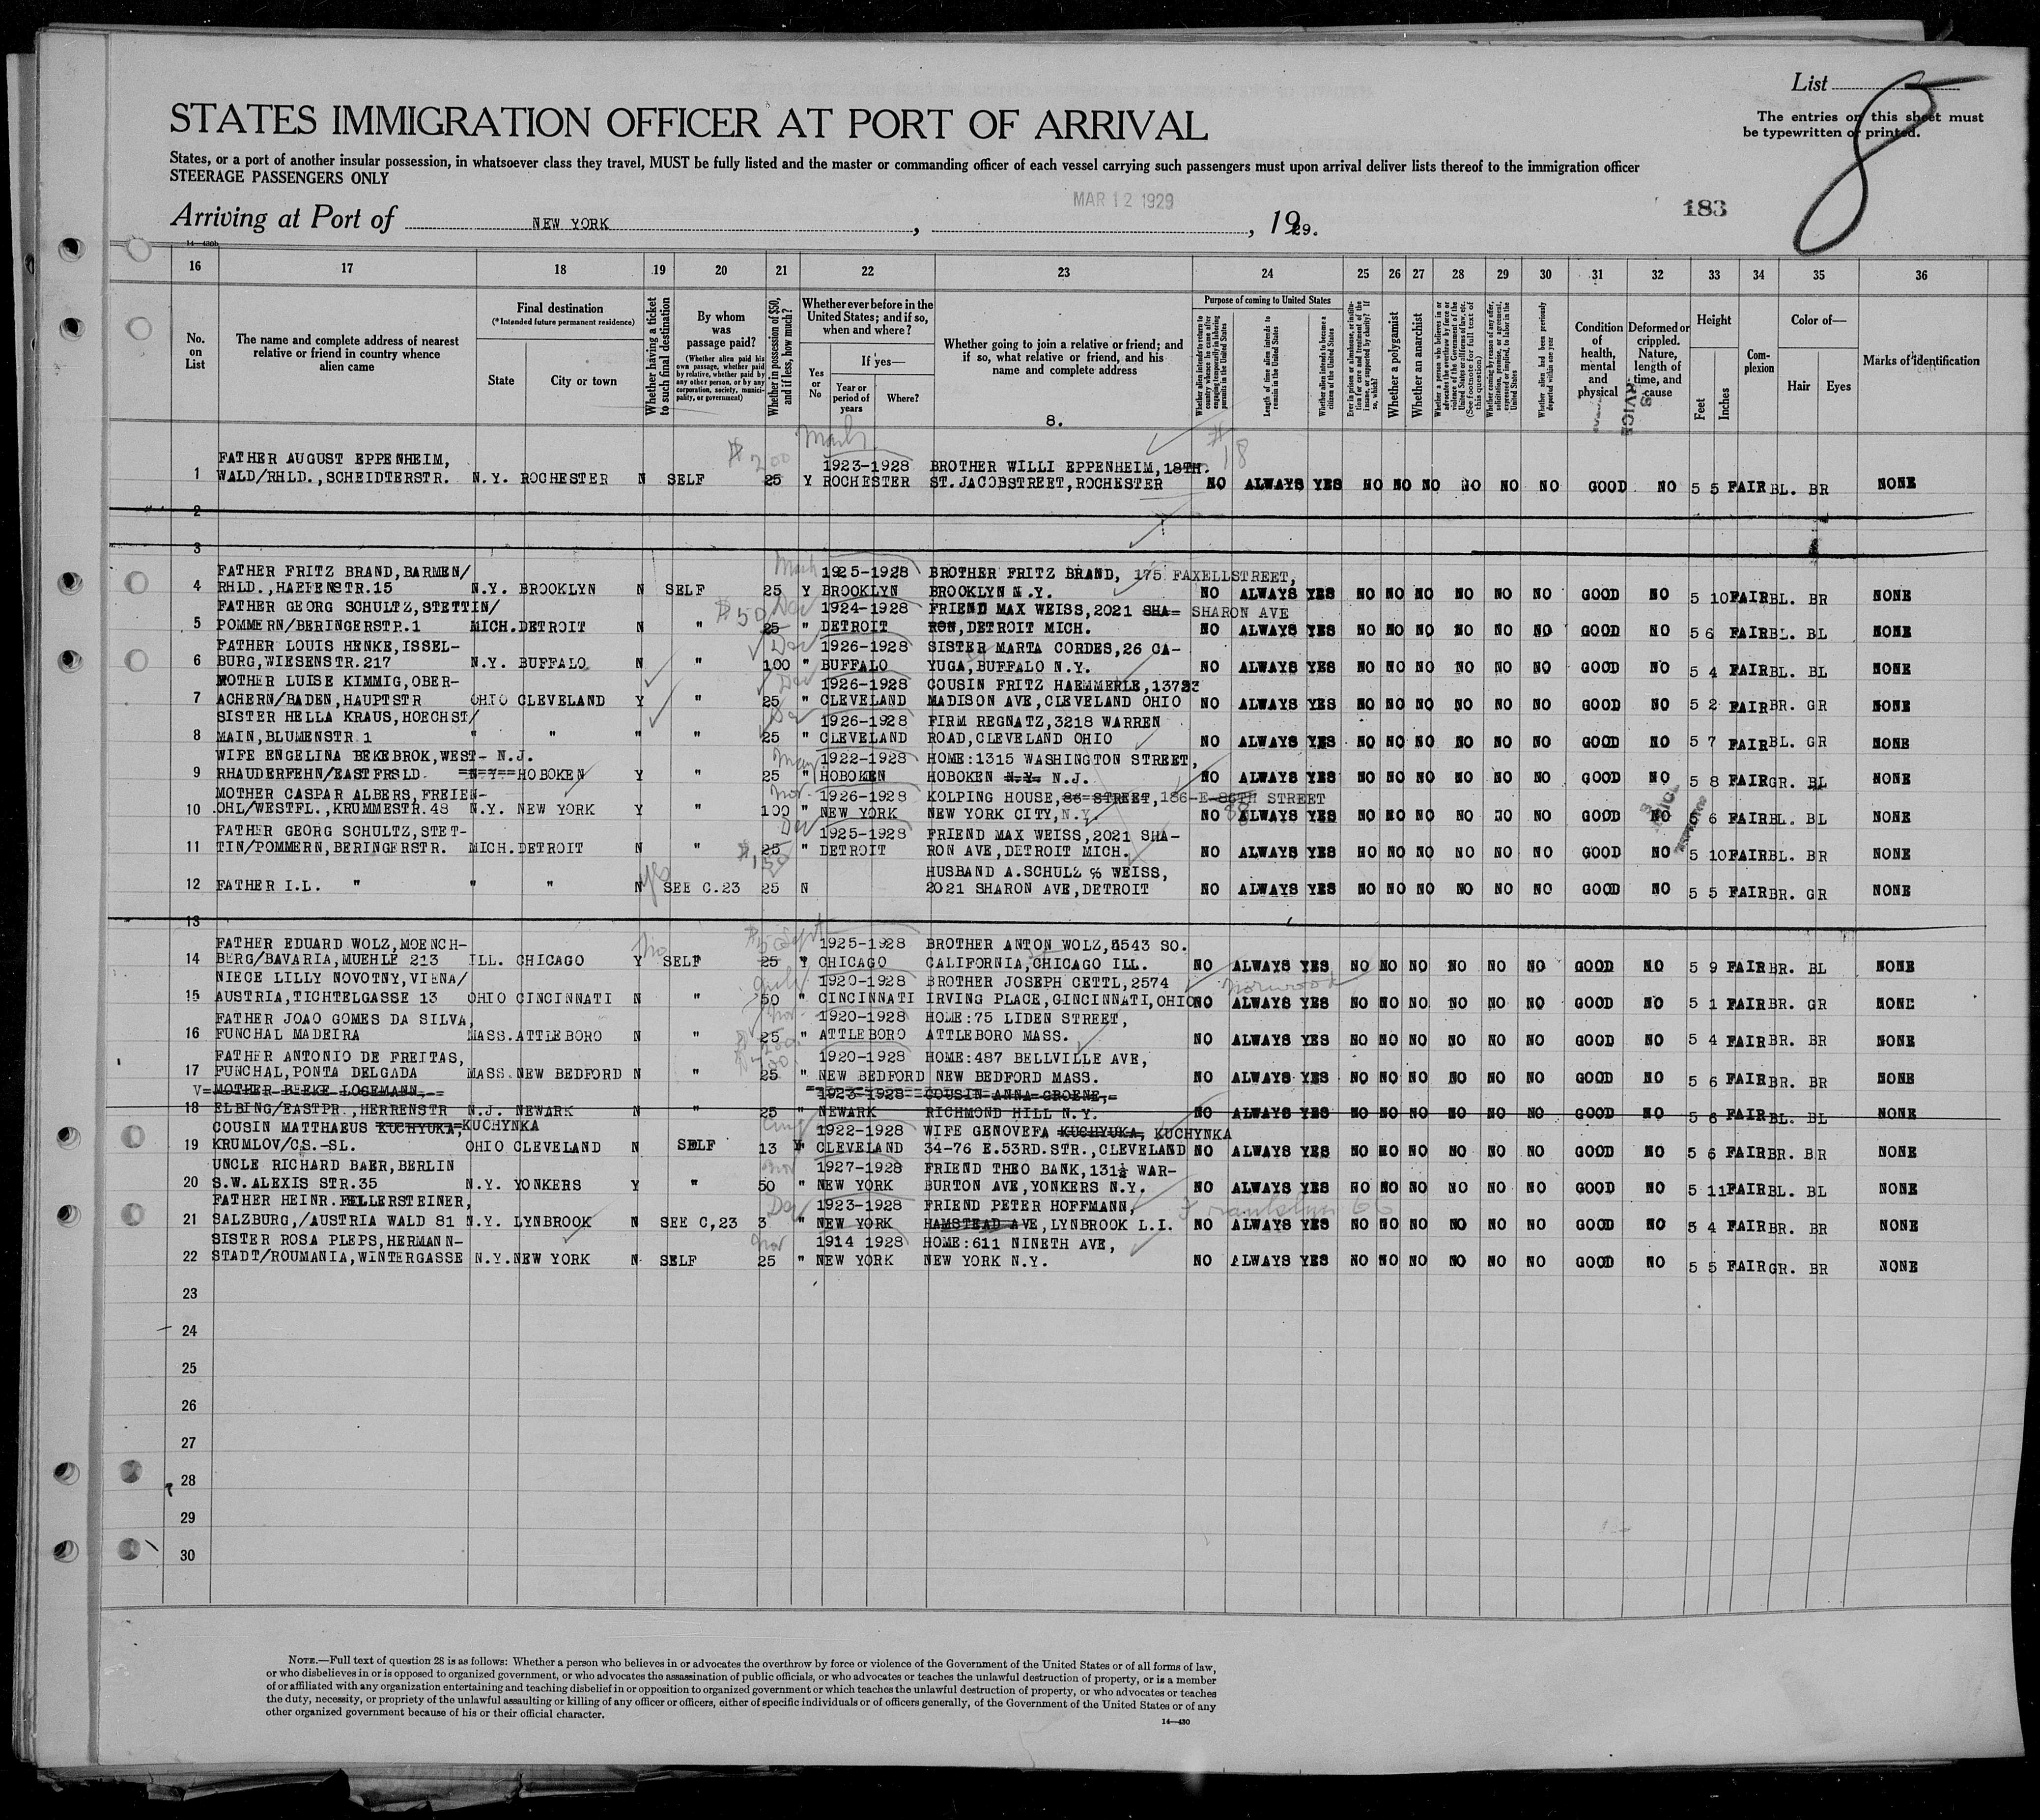 List 8
The entries on this sheet must
be typewritten or printed.
STATES IMMIGRATION OFFICER AT PORT OF ARRIVAL
States, or a port of another insular possession, in whatsoever class they travel, MUST be fully listed and the master or commanding officer of each vessel carrying such passengers must upon arrival deliver lists thereof to the immigration officer
STEERAGE PASSENGERS ONLY
MAR 12 1929
183
Arriving at Port of NEW YORK , , 1929.
14—430b
16 17 18 19 20 21 22 23 24 25 26 27 28 29 30 31 32 33 34 35 36
No. on List
The name and complete address of nearest relative or friend in country whence alien came
Final destination
(*Intended future permanent residence)
State
City or town
Whether having a ticket to such final destination
By whom was passage paid?
(Whether alien paid his own passage, whether paid by relative, whether paid by any other person, or by any corporation, society, municipality, or government)
Whether in possession of $50, and if less, how much?
Whether ever before in the United States; and if so, when and where?
Yes or No
If yes—
Year or period of years
Where?
Whether going to join a relative or friend; and if so, what relative or friend, and his name and complete address
8.
Purpose of coming to United States
Whether alien intends to return to country whence he came after engaging temporarily in laboring pursuits in the United States
Length of time alien intends to remain in the United States
Whether alien intends to become a citizen of the United States
Ever in prison or almshouse, or institution for care and treatment of the insane, or supported by charity? If so, which?
Whether a polygamist
Whether an anarchist
Whether a person who believes in or advocates the overthrow by force or violence of the Government of the United States or all forms of law, etc. (See footnote for full text of this question)
Whether coming by reason of any offer, solicitation, promise, or agreement, expressed or implied, to labor in the United States
Whether alien had been previously deported within one year
Condition of health, mental and physical
Deformed or crippled. Nature, length of time, and cause
Height
Feet
Inches
Complexion
Color of—
Hair
Eyes
Marks of identification
FATHER AUGUST EPPENHEIM, 1923-1928 BROTHER WILLI EPPENHEIM, 18TH.
1 WALD/RHLD.,SCHEIDTERSTR. N.Y. ROCHESTER N SELF 25 Y ROCHESTER ST.JACOBSTREET,ROCHESTER NO ALWAYS YES NO NO NO NO NO NO GOOD NO 5 5 FAIR BL. BR NONE
2
3
FATHER FRITZ BRAND,BARMEN/ 1925-1928 BROTHER FRITZ BRAND, 175 FAXELLSTREET,
4 RHLD.,HAEFENSTR.15 N.Y. BROOKLYN N SELF 25 Y BROOKLYN BROOKLYN N.Y. NO ALWAYS YES NO NO NO NO NO NO GOOD NO 5 10 FAIR BL. BR NONE
FATHER GEORG SCHULTZ,STETTIN/ $50 1924-1928 FRIEND MAX WEISS,2021 SHA= SHARON AVE
5 POMMERN/BERINGERSTR.1 MICH. DETROIT N " 25 " DETROIT RON,DETROIT MICH. NO ALWAYS YES NO NO NO NO NO NO GOOD NO 5 6 FAIR BL. BL NONE
FATHER LOUIS HENKE,ISSEL- 1926-1928 SISTER MARTA CORDES,26 CA-
6 BURG,WIESENSTR.217 N.Y. BUFFALO N " 100 " BUFFALO YUGA,BUFFALO N.Y. NO ALWAYS YES NO NO NO NO NO NO GOOD NO 5 4 FAIR BL. BL NONE
MOTHER LUISE KIMMIG,OBER- 1926-1928 COUSIN FRITZ HAEMMERLE,
7 ACHERN/BADEN,HAUPTSTR OHIO CLEVELAND Y " 25 " CLEVELAND MADISON AVE,CLEVELAND OHIO NO ALWAYS YES NO NO NO NO NO NO GOOD NO 5 2 FAIR BR. GR NONE
SISTER HELLA KRAUS,HOECHST/ 1926-1928 FIRM REGNATZ,3218 WARREN
8 MAIN,BLUMENSTR 1 " " " " 25 " CLEVELAND ROAD,CLEVELAND OHIO NO ALWAYS YES NO NO NO NO NO NO GOOD NO 5 7 FAIR BL. GR NONE
WIFE ENGELINA BEKEBROK,WEST- N.J. 1922-1928 HOME:1315 WASHINGTON STREET,
9 RHAUDERFEHN/EASTFRSLD. N.Y. HOBOKEN Y " 25 " HOBOKEN HOBOKEN N.Y. N.J. NO ALWAYS YES NO NO NO NO NO NO GOOD NO 5 8 FAIR GR. BL NONE
MOTHER CASPAR ALBERS,FREIEN- 1926-1928 KOLPING HOUSE,86 STREET,186-E-86TH STREET
10 OHL/WESTFL.,KRUMMESTR.48 N.Y. NEW YORK Y " 100 " NEW YORK NEW YORK CITY,N.Y. NO ALWAYS YES NO NO NO NO NO NO GOOD NO 5 6 FAIR BL. BL NONE
FATHER GEORG SCHULTZ,STET- 1925-1928 FRIEND MAX WEISS,2021 SHA-
11 TIN/POMMERN,BERINGERSTR. MICH. DETROIT N " 25 " DETROIT RON AVE,DETROIT MICH. NO ALWAYS YES NO NO NO NO NO NO GOOD NO 5 10 FAIR BL. BR NONE
$150 HUSBAND A.SCHULZ % WEISS,
12 FATHER I.L. " " " N yes SEE C.23 25 N 2021 SHARON AVE,DETROIT NO ALWAYS YES NO NO NO NO NO NO GOOD NO 5 5 FAIR BR. GR NONE
13
FATHER EDUARD WOLZ,MOENCH- Sept 1925-1928 BROTHER ANTON WOLZ,8543 SO.
14 BERG/BAVARIA,MUEHLE 213 ILL. CHICAGO Y no SELF 25 Y CHICAGO CALIFORNIA,CHICAGO ILL. NO ALWAYS YES NO NO NO NO NO NO GOOD NO 5 9 FAIR BR. BL NONE
NIECE LILLY NOVOTNY,VIENA/ July 1920-1928 BROTHER JOSEPH CETTL,2574 Norwood
15 AUSTRIA,TICHTELGASSE 13 OHIO CINCINNATI N " 50 " CINCINNATI IRVING PLACE,GINCINNATI,OHIO NO ALWAYS YES NO NO NO NO NO NO GOOD NO 5 1 FAIR BR. GR NONE
FATHER JOAO GOMES DA SILVA, 1920-1928 HOME:75 LIDEN STREET,
16 FUNCHAL MADEIRA MASS. ATTLEBORO N " 25 " ATTLEBORO ATTLEBORO MASS. NO ALWAYS YES NO NO NO NO NO NO GOOD NO 5 4 FAIR BR. BR NONE
FATHER ANTONIO DE FREITAS, 1920-1928 HOME:487 BELLVILLE AVE,
17 FUNCHAL,PONTA DELGADA MASS. NEW BEDFORD N " 25 " NEW BEDFORD NEW BEDFORD MASS. NO ALWAYS YES NO NO NO NO NO NO GOOD NO 5 6 FAIR BR. BR NONE
MOTHER BEEKE LOGEMANN, 1923-1928 COUSIN ANNA GROENE,
18 ELBING/EASTPR.,HERRENSTR N.J. NEWARK N " 25 " NEWARK RICHMOND HILL N.Y. NO ALWAYS YES NO NO NO NO NO NO GOOD NO 5 6 FAIR BL. BL NONE
COUSIN MATTHAEUS KUCHYUKA, KUCHYNKA 1922-1928 WIFE GENOVEFA KUCHYUKA, KUCHYNKA
19 KRUMLOV/CS.-SL. OHIO CLEVELAND N SELF 13 Y CLEVELAND 34-76 E.53RD.STR.,CLEVELAND NO ALWAYS YES NO NO NO NO NO NO GOOD NO 5 6 FAIR BR. BR NONE
UNCLE RICHARD BAER,BERLIN 1927-1928 FRIEND THEO BANK,131½ WAR-
20 S.W.ALEXIS STR.35 N.Y. YONKERS Y " 50 " NEW YORK BURTON AVE,YONKERS N.Y. NO ALWAYS YES NO NO NO NO NO NO GOOD NO 5 11 FAIR BL. BL NONE
FATHER HEINR.FELLERSTEINER, 1923-1928 FRIEND PETER HOFFMANN,
21 SALZBURG,/AUSTRIA WALD 81 N.Y. LYNBROOK N SEE C,23 3 " NEW YORK HAMSTEAD AVE,LYNBROOK L.I. NO ALWAYS YES NO NO NO NO NO NO GOOD NO 5 4 FAIR BR. BR NONE
SISTER ROSA PLEPS,HERMANN- 1914 1928 HOME:611 NINETH AVE,
22 STADT/ROUMANIA,WINTERGASSE N.Y. NEW YORK N SELF 25 " NEW YORK NEW YORK N.Y. NO ALWAYS YES NO NO NO NO NO NO GOOD NO 5 5 FAIR GR. BR NONE
23
24
25
26
27
28
29
30
NOTE.—Full text of question 28 is as follows: Whether a person who believes in or advocates the overthrow by force or violence of the Government of the United States or of all forms of law,
or who disbelieves in or is opposed to organized government, or who advocates the assassination of public officials, or who advocates or teaches the unlawful destruction of property, or is a member
of or affiliated with any organization entertaining and teaching disbelief in or opposition to organized government or which teaches the unlawful destruction of property, or who advocates or teaches
the duty, necessity, or propriety of the unlawful assaulting or killing of any officer or officers, either of specific individuals or of officers generally, of the Government of the United States or of any
other organized government because of his or their official character.
14—430